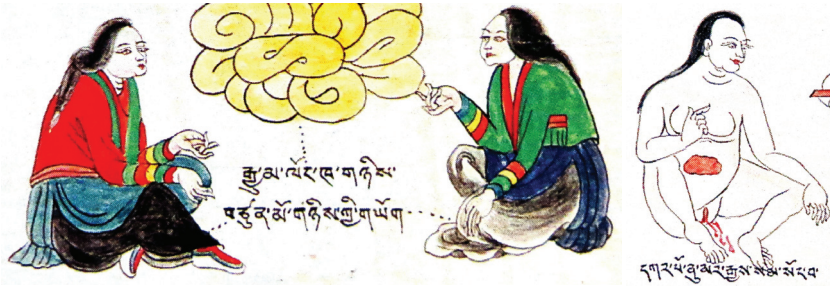 རྒྱུ་མ་ལོང་ཁ་གཉིས་
བཙུན་མོ་གཉིས་ཀྱི་གཡོག
དཀར་པོ་ནུ་མར་རྒྱས་སམ་སོང་བ་